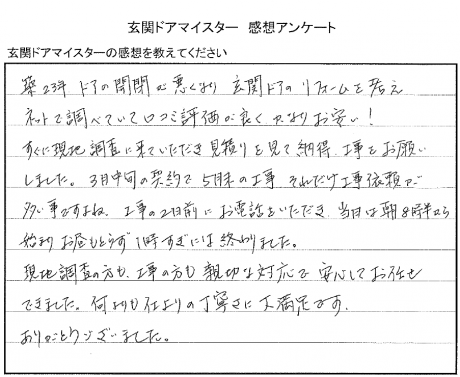 玄関ドアマイスター 感想アンケート
玄関ドアマイスターの感想を教えてください
築23年 ドアの開閉が悪くなり 玄関ドアのリフォームを考え
ネットで調べていて口コミ評価が良く かなりお安い!
すぐに現地調査に来ていただき見積りを見て納得、工事をお願い
しました。3月中旬の契約で5月末の工事 それだけ工事依頼が
多い事ですよね。工事の2日前にお電話をいただき 当日は朝8時半から
始まり お昼もとらず 1時すぎには終わりました。
現地調査の方も、工事の方も 親切な対応で 安心してお任せ
できました。何よりも仕上りの丁寧さに大満足です。
ありがとうございました。